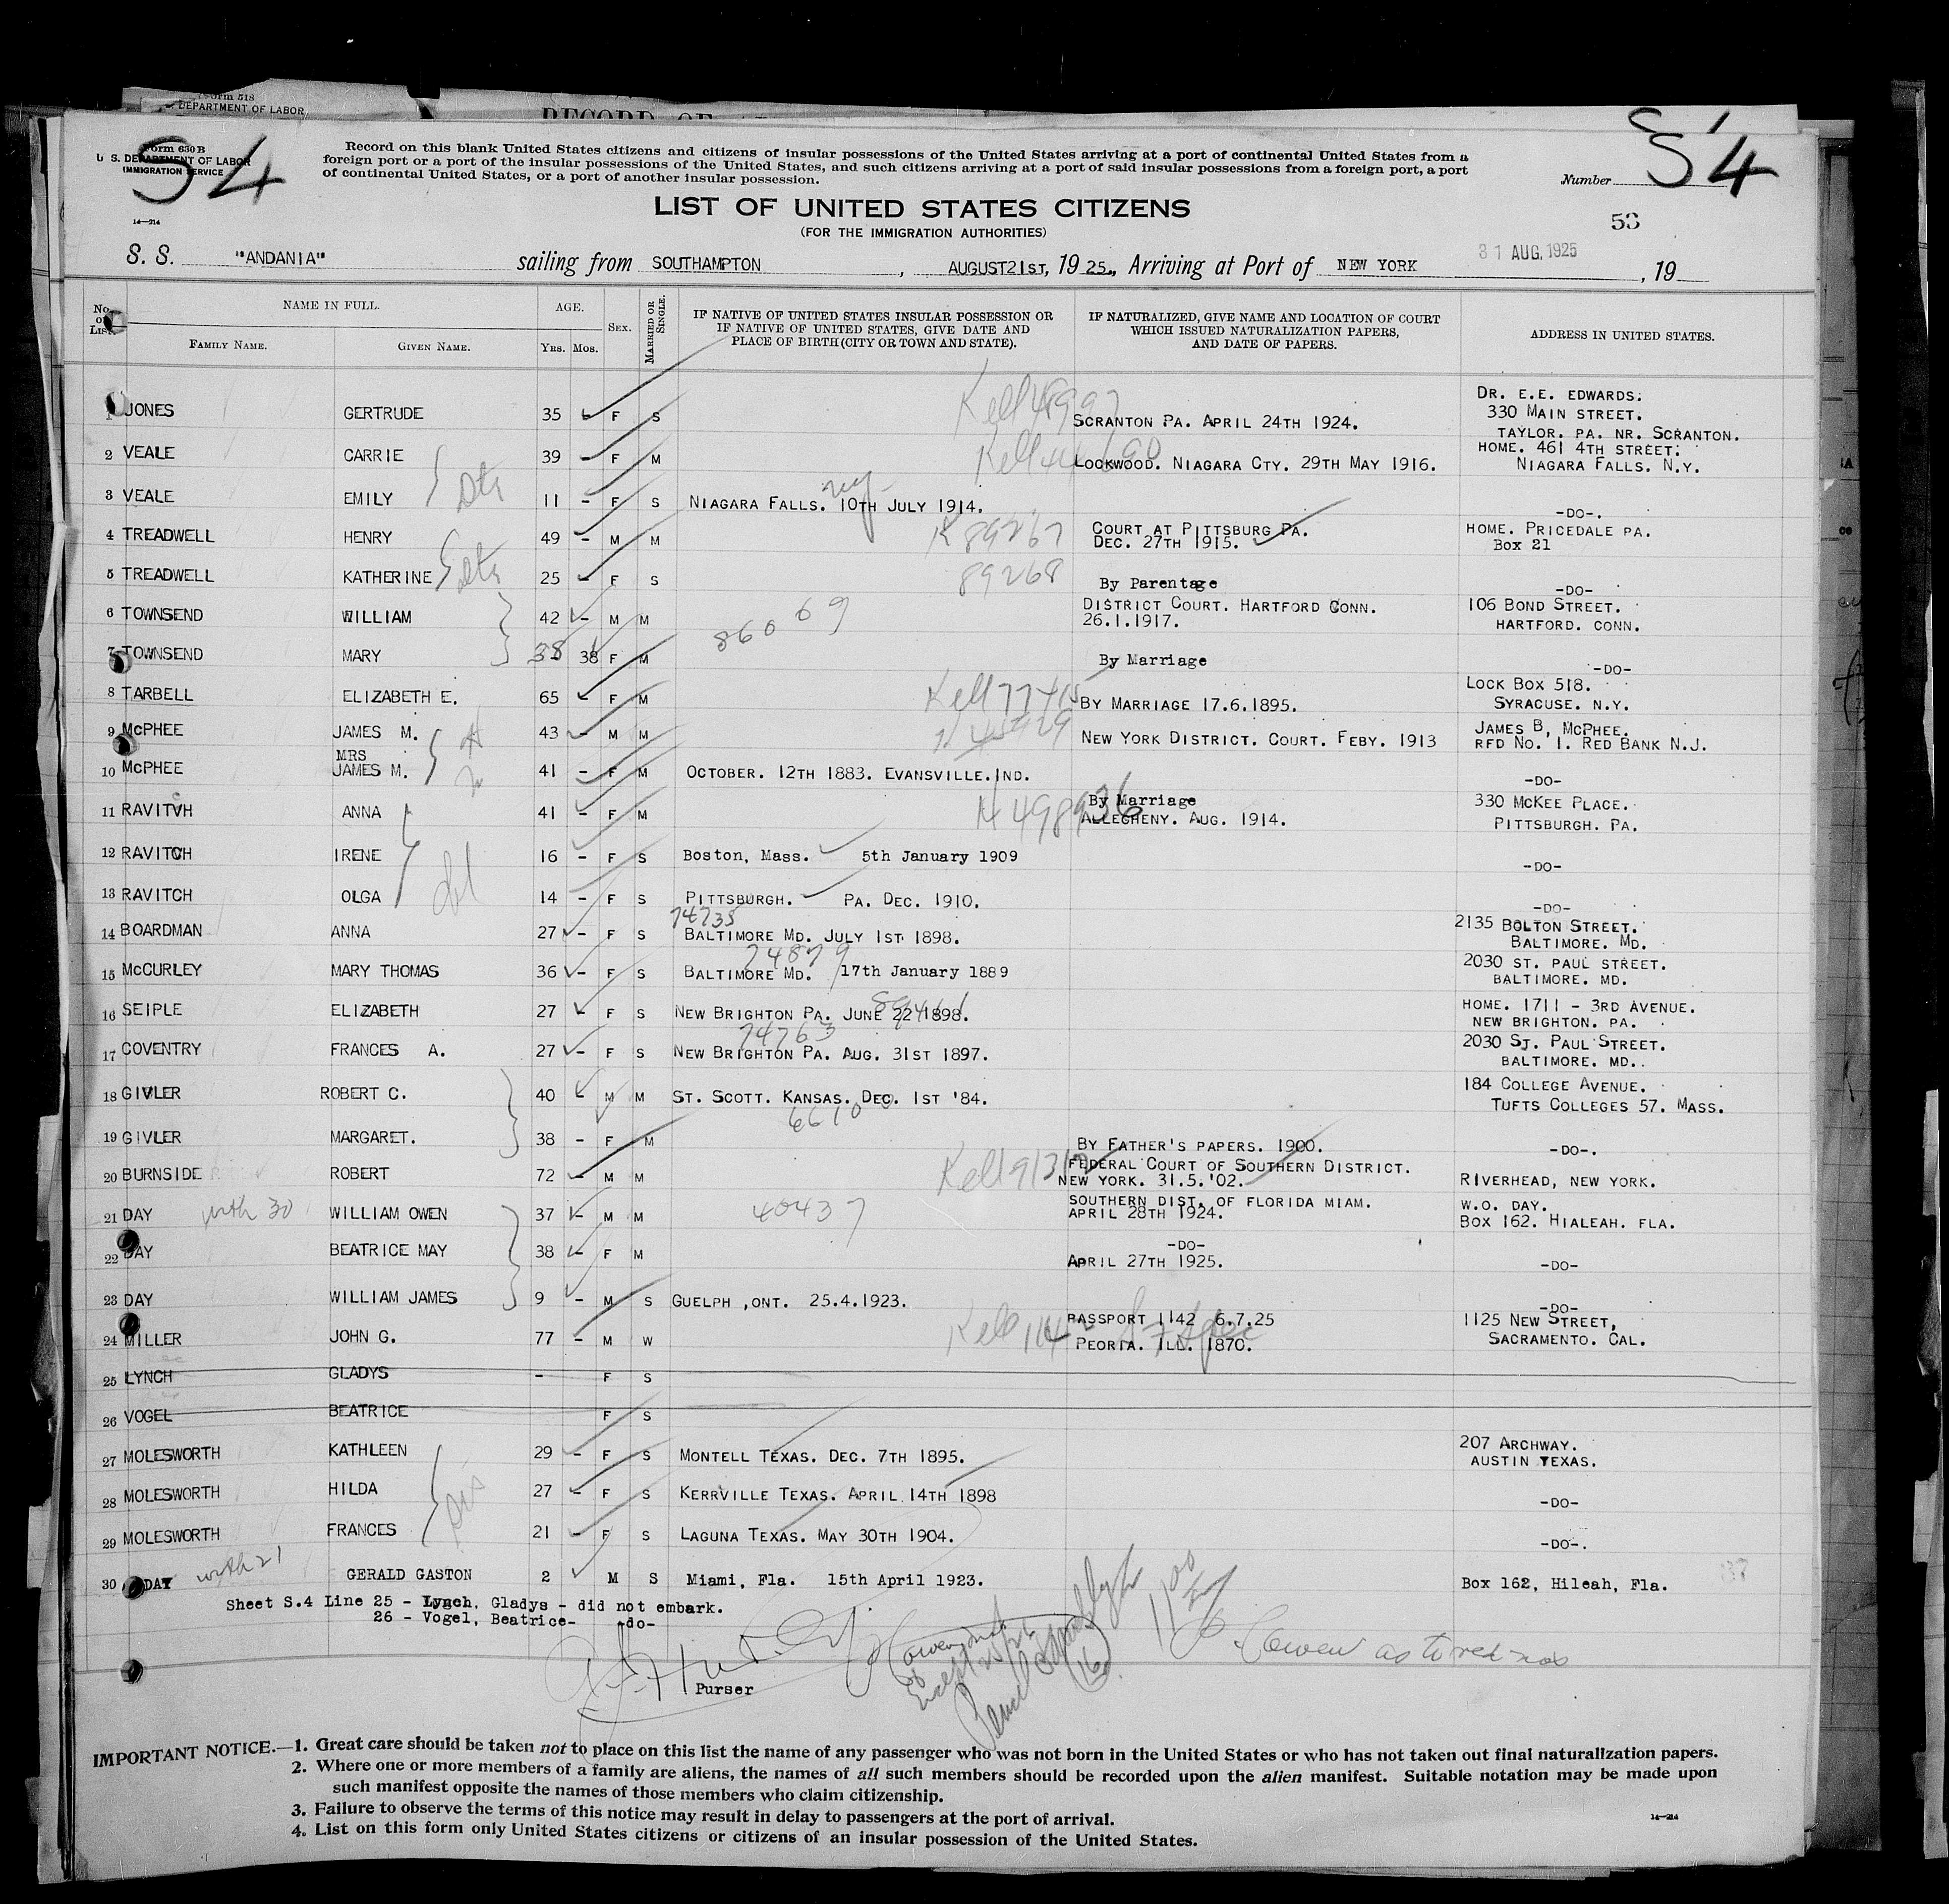 Form 518
DEPARTMENT OF LABOR
RECORD OF
S4
Form 630 B
U. S. DEPARTMENT OF LABOR
IMMIGRATION SERVICE
14—214
Record on this blank United States citizens and citizens of insular possessions of the United States arriving at a port of continental United States from a
foreign port or a port of the insular possessions of the United States, and such citizens arriving at a port of said insular possessions from a foreign port, a port
of continental United States, or a port of another insular possession.
Number S4
LIST OF UNITED STATES CITIZENS
(FOR THE IMMIGRATION AUTHORITIES)
53
S. S. "ANDANIA" sailing from SOUTHAMPTON, AUGUST 21ST, 1925., Arriving at Port of NEW YORK 31 AUG. 1925, 19
No. on List. NAME IN FULL. AGE. SEX. MARRIED OR SINGLE. IF NATIVE OF UNITED STATES INSULAR POSSESSION OR IF NATIVE OF UNITED STATES, GIVE DATE AND PLACE OF BIRTH (CITY OR TOWN AND STATE). IF NATURALIZED, GIVE NAME AND LOCATION OF COURT WHICH ISSUED NATURALIZATION PAPERS, AND DATE OF PAPERS. ADDRESS IN UNITED STATES.
FAMILY NAME. GIVEN NAME. YRS. MOS.
1 JONES GERTRUDE 35 - F S SCRANTON PA. APRIL 24TH 1924. DR. E.E. EDWARDS. 330 MAIN STREET. TAYLOR. PA. NR. SCRANTON.
2 VEALE CARRIE 39 - F M LOCKWOOD. NIAGARA CTY. 29TH MAY 1916. HOME. 461 4TH STREET. NIAGARA FALLS. N.Y.
3 VEALE EMILY 11 - F S NIAGARA FALLS. 10TH JULY 1914. -DO-.
4 TREADWELL HENRY 49 - M M K 89267 COURT AT PITTSBURG PA. DEC. 27TH 1915. HOME. PRICEDALE PA. BOX 21
5 TREADWELL KATHERINE 25 - F S 89268 By Parentage -DO-
6 TOWNSEND WILLIAM 42 - M M 86069 DISTRICT COURT. HARTFORD CONN. 26.1.1917. 106 BOND STREET. HARTFORD. CONN.
7 TOWNSEND MARY 38 38 F M By Marriage -DO-
8 TARBELL ELIZABETH E. 65 - F M Kell 77415 BY MARRIAGE 17.6.1895. LOCK BOX 518. SYRACUSE. N.Y.
9 McPHEE JAMES M. 43 - M M NEW YORK DISTRICT. COURT. FEBY. 1913 JAMES B, McPHEE. RFD NO. 1. RED BANK N.J.
10 McPHEE MRS JAMES M. 41 - F M OCTOBER. 12TH 1883. EVANSVILLE. IND. -DO-
11 RAVITVH ANNA 41 - F M N 498936 By Marriage ALLEGHENY. AUG. 1914. 330 McKEE PLACE. PITTSBURGH. PA.
12 RAVITCH IRENE 16 - F S Boston, Mass. 5th January 1909 -DO-
13 RAVITCH OLGA 14 - F S PITTSBURGH. PA. DEC. 1910. -DO-
14 BOARDMAN ANNA 27 - F S 74735 BALTIMORE MD. JULY 1ST 1898. 2135 BOLTON STREET. BALTIMORE. MD.
15 McCURLEY MARY THOMAS 36 - F S 74879 BALTIMORE MD. 17th January 1889 2030 ST. PAUL STREET. BALTIMORE. MD.
16 SEIPLE ELIZABETH 27 - F S NEW BRIGHTON PA. JUNE 22 1898. HOME. 1711 - 3RD AVENUE. NEW BRIGHTON. PA.
17 COVENTRY FRANCES A. 27 - F S 74763 NEW BRIGHTON PA. AUG. 31ST 1897. 2030 ST. PAUL STREET. BALTIMORE. MD.
18 GIVLER ROBERT C. 40 - M M ST. SCOTT. KANSAS. DEC. 1ST '84. 184 COLLEGE AVENUE. TUFTS COLLEGES 57. MASS.
19 GIVLER MARGARET. 38 - F M BY FATHER'S PAPERS. 1900. -DO-.
20 BURNSIDE ROBERT 72 - M M FEDERAL COURT OF SOUTHERN DISTRICT. NEW YORK. 31.5.'02. RIVERHEAD, NEW YORK.
21 DAY with 30 WILLIAM OWEN 37 - M M 40437 SOUTHERN DIST. OF FLORIDA MIAM. APRIL 28TH 1924. W.O. DAY. BOX 162. HIALEAH. FLA.
22 DAY BEATRICE MAY 38 - F M -DO- APRIL 27TH 1925. -DO-
23 DAY WILLIAM JAMES 9 - M S GUELPH ,ONT. 25.4.1923. -DO-
24 MILLER JOHN G. 77 - M W PASSPORT 1142 6.7.25 PEORIA. ILL. 1870. 1125 NEW STREET, SACRAMENTO. CAL.
25 LYNCH GLADYS - F S
26 VOGEL BEATRICE F S
27 MOLESWORTH KATHLEEN 29 - F S MONTELL TEXAS. DEC. 7TH 1895. 207 ARCHWAY. AUSTIN TEXAS.
28 MOLESWORTH HILDA 27 - F S KERRVILLE TEXAS. APRIL 14TH 1898 -DO-
29 MOLESWORTH FRANCES 21 - F S LAGUNA TEXAS. MAY 30TH 1904. -DO-.
30 DAY with 21 GERALD GASTON 2 M S Miami, Fla. 15th April 1923. Box 162, Hileah, Fla.
Sheet S.4 Line 25 - Lynch, Gladys - did not embark.
26 - Vogel, Beatrice- -do-
Purser
IMPORTANT NOTICE.—1. Great care should be taken not to place on this list the name of any passenger who was not born in the United States or who has not taken out final naturalization papers.
2. Where one or more members of a family are aliens, the names of all such members should be recorded upon the alien manifest. Suitable notation may be made upon
such manifest opposite the names of those members who claim citizenship.
3. Failure to observe the terms of this notice may result in delay to passengers at the port of arrival.
4. List on this form only United States citizens or citizens of an insular possession of the United States.
14—214